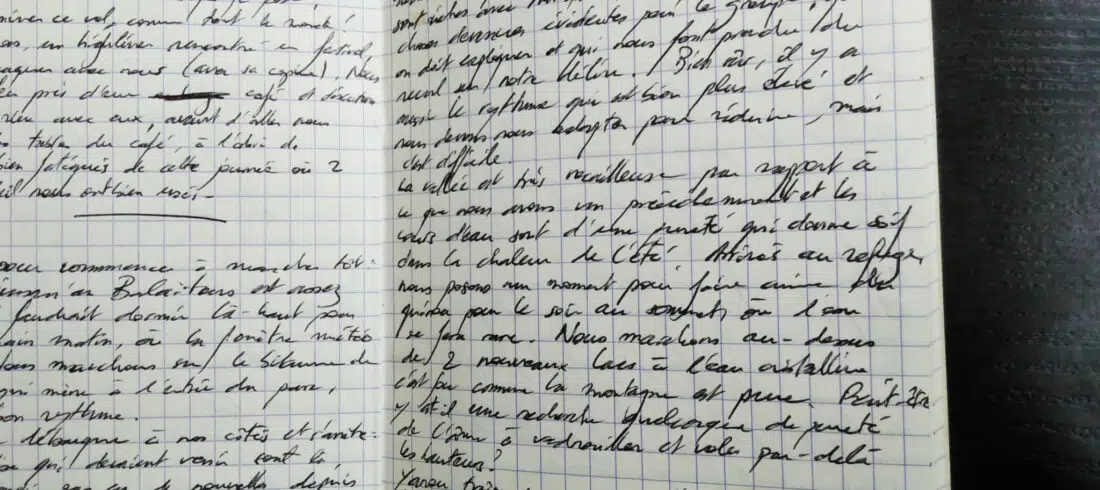 ce vol, comme dont le
rencontré en festival,
avec nous (avec sa copine). Nous
près d'eux café et discution
avec eux, avant d'aller nous
tables du café, à l'abri de
bien fatigués de cette journée où 2
nous ont bien usés.
pour commencer à marcher tôt.
jusqu'au Balaïtous est assez
faudrait dormir là-haut pour
matin, où la fenêtre météo
marchons sur le bitume de
qui mène à l'entrée du parc,
bon rythme.
débarque à nos côtés et s'arrête.
qui devaient venir sont là
de nouvelles depuis
sont riches avec
choses devenues évidentes pour le groupe,
on doit expliquer et qui nous font prendre du
recul sur notre délire. Bien sûr, il y a
aussi le rythme qui est bien plus élevé et
nous devons nous adapter pour réduire, mais
c'est difficile.
La vallée est très rocailleuse par rapport à
ce que nous avons vu précédemment et les
cours d'eau sont d'une pureté qui donne soif
dans la chaleur de l'été. Arrivés au refuge,
nous posons un moment pour faire cuire
quinoa pour le soir au sommet, où l'eau
se fera rare. Nous marchons au-dessus
de 2 nouveaux lacs à l'eau cristalline
c'est pur comme la montagne est pure. Peut-être
y at-il une recherche quelconque de pureté
de l'âme à vadrouiller et voler par-delà
les hauteurs?